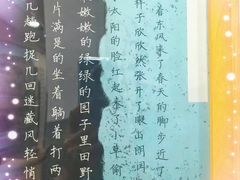 着东风来了春天的脚步近了
样子欣欣然张开了眼山朗润
太阳的脸红起来了小草偷
嫩嫩的绿绿的园子里田野
片满是的坐着躺着打两
几趟跑捉几回迷藏风轻悄